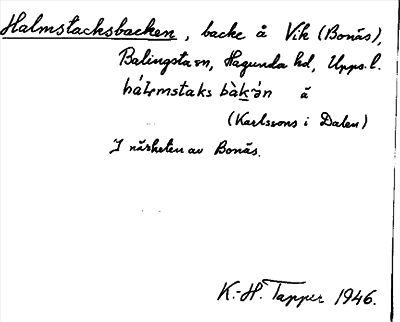 Halmstacksbacken, backe å Vik (Bonäs),
Balingsta sn, Hagunda hd, Upps. l.
hálmstaks bàk·ən å
(Karlssons i Dalen)
I närheten av Bonäs.
K.-H. Tapper 1946.